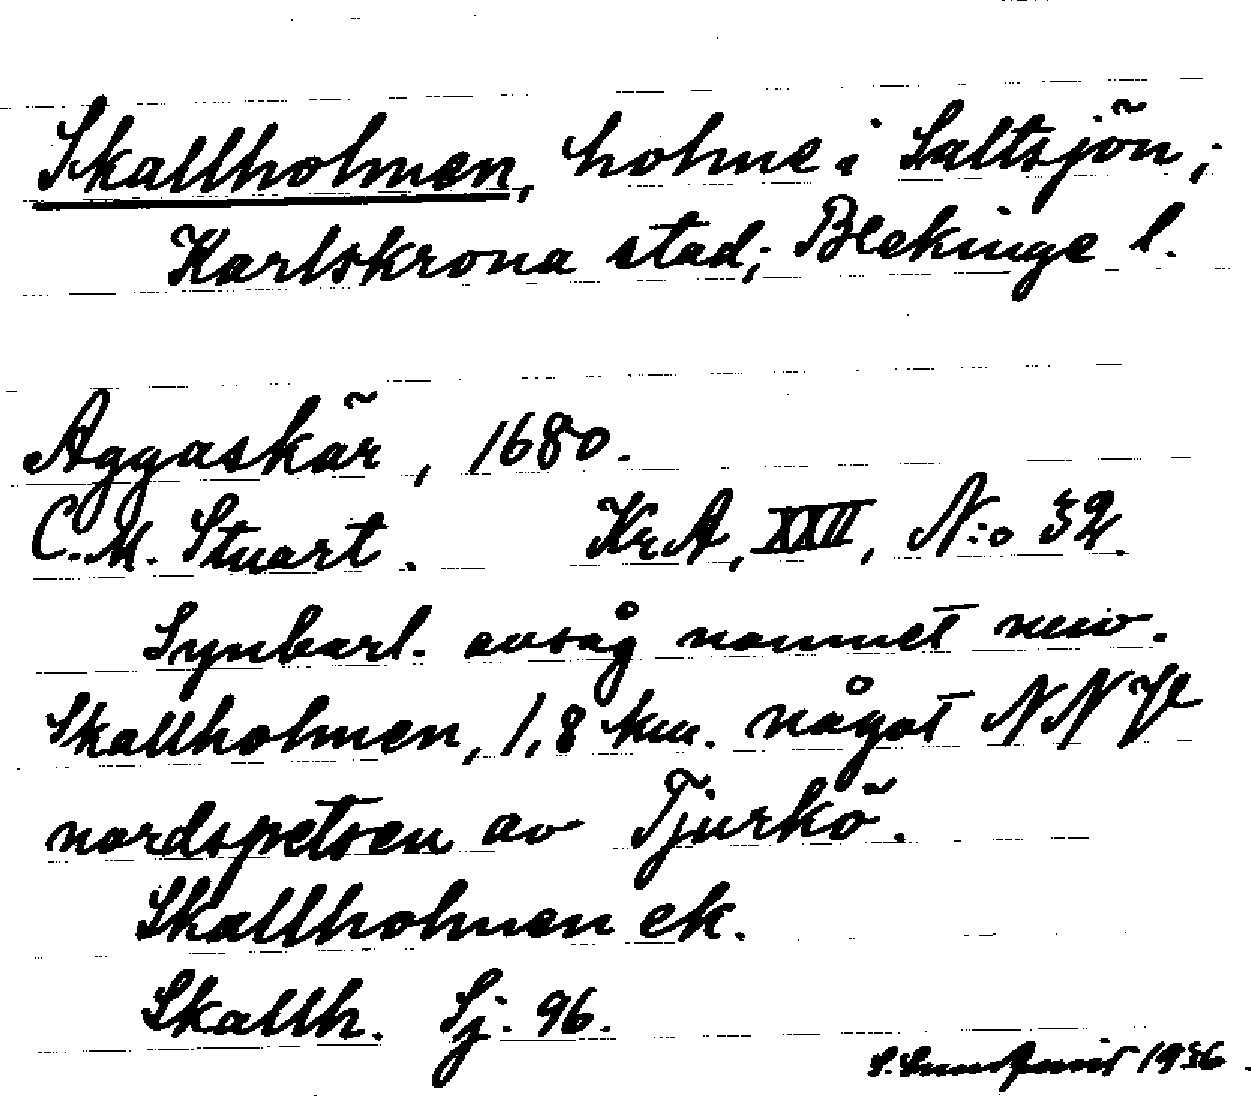 Skallholmen, holme i Saltsjön;
Karlskrona stad; Blekinge l.
Aggaskär, 1680.
C.M. Stuart. Kr.A, XXII, N:o 32.
Synbarl. avsåg namnet nuv.
Skallholmen, 1,8 km. något NNV
nordspetsen av Tjurkö.
Skallholmen ek.
Skallh. Sj. 96.
1936